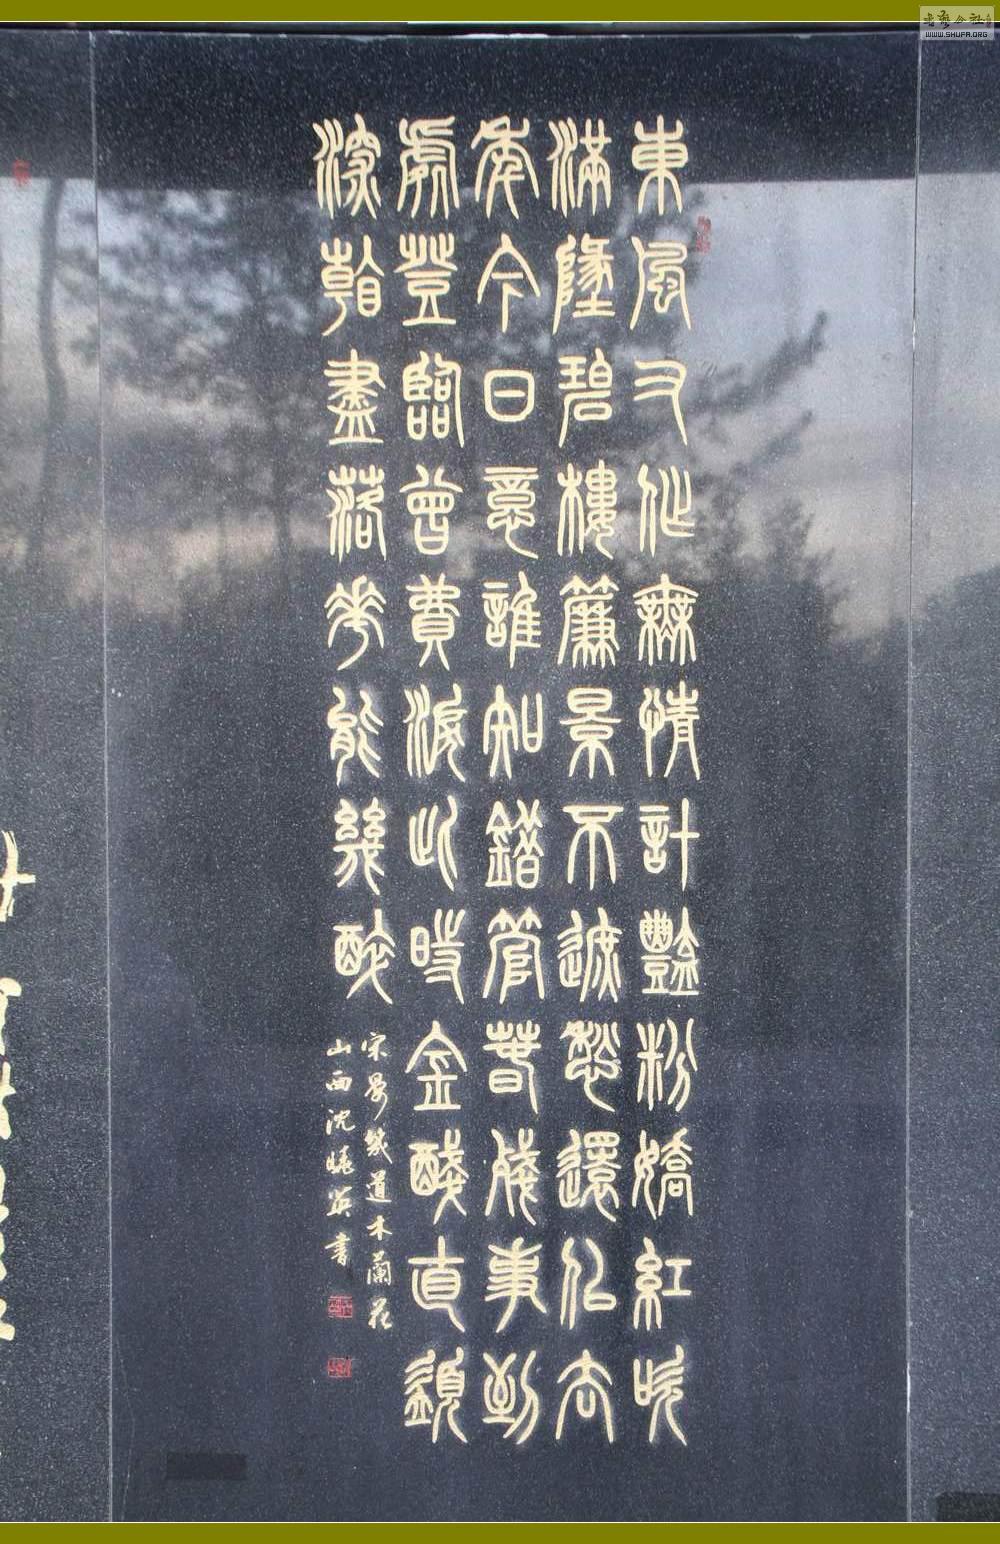 東風又作無情計豔粉嬌紅吹
滿墬碧樓簾景不遮愁還佀去
年今日意誰知錯管春殘事到
處登臨曾費淚此時金醆直須
深看盡落花能幾醉
宋晏幾道木蘭花
山西沈曉英書
WWW.SHUFA.ORG